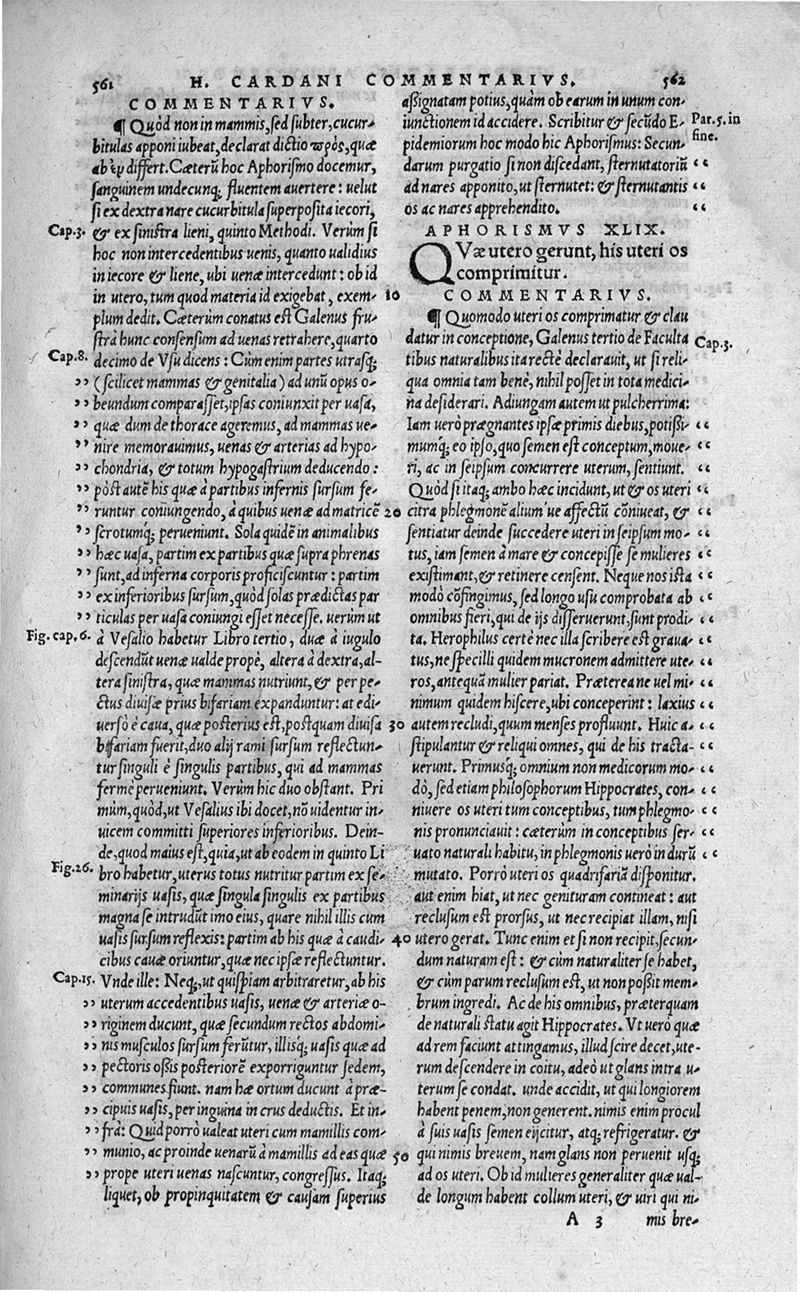 561 H. CARDANI COMMENTARIVS. 562
COMMENTARIVS.
¶ Quòd non in mammis, sed subter, cucur-
bitulas apponi iubeat, declarat dictio πρὸς, quæ
ab ἐν differt. Cæterũ hoc Aphorismo docemur,
sanguinem undecunq; fluentem auertere: uelut
si ex dextra nare cucurbitula superposita iecori,
Cap.3. & ex sinistra lieni, quinto Methodi. Verùm si
hoc non intercedentibus uenis, quanto ualidius
in iecore & liene, ubi uenæ intercedunt: ob id
in utero, tum quod materia id exigebat, exem- 10
plum dedit. Cæterùm conatus est Galenus fru-
strà hunc consensum ad uenas retrahere, quarto
Cap.8. decimo de Vsu dicens: Cùm enim partes utrasq;
,, (scilicet mammas & genitalia) ad unũ opus o-
,, beundum comparasset, ipsas coniunxit per uasa,
,, quæ dum de thorace ageremus, ad mammas ue-
,, nire memorauimus, uenas & arterias ad hypo-
,, chondria, & totum hypogastrium deducendo:
,, pòst autẽ his quæ à partibus infernis sursum fe-
,, runtur coniungendo, à quibus uenæ ad matricẽ 20
,, scrotumq; perueniunt. Sola quidẽ in animalibus
,, hæc uasa, partim ex partibus quæ supra phrenas
,, sunt, ad inferna corporis proficiscuntur: partim
,, ex inferioribus sursum, quòd solas prædictas par
,, ticulas per uasa coniungi esset necesse. uerùm ut
Fig. cap. 6. à Vesalio habetur Libro tertio, duæ à iugulo
descendũt uenæ ualde propè, altera à dextra, al-
tera sinistra, quæ mammas nutriunt, & per pe-
ctus diuisæ prius bifariam expanduntur: at edi-
uersò è caua, quæ posterius est, postquam diuisa 30
bifariam fuerit, duo alij rami sursum reflectun-
tur singuli è singulis partibus, qui ad mammas
fermè perueniunt. Verùm hic duo obstant. Pri
mùm, quòd, ut Vesalius ibi docet, nõ uidentur in-
uicem committi superiores inferioribus. Dein-
de, quod maius est, quia, ut ab eodem in quinto Li
Fig.26. bro habetur, uterus totus nutritur partim ex se-
minarijs uasis, quæ singula singulis ex partibus
magna se intrudũt imo eius, quare nihil illis cum
uasis sursum reflexis: partim ab his quæ à caudi- 40
cibus cauæ oriuntur, quæ nec ipsæ reflectuntur.
Cap.15. Vnde ille: Neq;, ut quispiam arbitraretur, ab his
,, uterum accedentibus uasis, uenæ & arteriæ o-
,, riginem ducunt, quæ secundum rectos abdomi-
,, nis musculos sursum ferũtur, illisq; uasis quæ ad
,, pectoris ossis posteriorẽ exporriguntur sedem,
,, communes fiunt. nam hæ ortum ducunt à præ-
,, cipuis uasis, per inguina in crus deductis. Et in-
,, frà: Quid porrò ualeat uteri cum mamillis com-
,, munio, ac proinde uenarũ à mamillis ad eas quæ 50
,, prope uteri uenas nascuntur, congressus. Itaq;
liquet, ob propinquitatem & causam superius
assignatam potius, quàm ob earum in unum con-
iunctionem id accidere. Scribitur & secũdo E- Par.5. in
pidemiorum hoc modo hic Aphorismus: Secun- fine.
darum purgatio si non discedant, sternutatoriũ “
ad nares apponito, ut sternutet: & sternutantis “
os ac nares apprehendito. “
APHORISMVS XLIX.
QVæ utero gerunt, his uteri os
comprimitur.
COMMENTARIVS.
¶ Quomodo uteri os comprimatur & clau
datur in conceptione, Galenus tertio de Faculta Cap.3.
tibus naturalibus ita rectè declarauit, ut si reli-
qua omnia tam benè, nihil posset in tota medici-
na desiderari. Adiungam autem ut pulcherrima:
Iam uerò prægnantes ipsæ primis diebus, potißi- “
mumq; eo ipso, quo semen est conceptum, moue- “
ri, ac in seipsum concurrere uterum, sentiunt. “
Quòd si itaq; ambo hæc incidunt, ut & os uteri “
citra phlegmonẽ alium ue affectũ cõniueat, & “
sentiatur deinde succedere uteri in seipsum mo- “
tus, iam semen à mare & concepisse se mulieres “
existimant, & retinere censent. Neque nos ista “
modò cõfingimus, sed longo usu comprobata ab “
omnibus fieri, qui de ijs disseruerunt, sunt prodi- “
ta. Herophilus certè nec illa scribere est graua- “
tus, ne specilli quidem mucronem admittere ute- “
ros, antequã mulier pariat. Præterea ne uel mi- “
nimum quidem hiscere, ubi conceperint: laxius “
autem recludi, quum menses profluunt. Huic a- “
stipulantur & reliqui omnes, qui de his tracta- “
uerunt. Primusq; omnium non medicorum mo- “
dò, sed etiam philosophorum Hippocrates, con- “
niuere os uteri tum conceptibus, tum phlegmo- “
nis pronunciauit: cæterùm in conceptibus ser- “
uato naturali habitu, in phlegmonis uerò in durũ “
mutato. Porrò uteri os quadrifariã disponitur.
aut enim hiat, ut nec genituram contineat: aut
reclusum est prorsus, ut nec recipiat illam, nisi
utero gerat. Tunc enim et si non recipit, secun-
dum naturam est: & cùm naturaliter se habet,
& cùm parum reclusum est, ut non poßit mem-
brum ingredi. Ac de his omnibus, præterquam
de naturali statu agit Hippocrates. Vt uerò quæ
ad rem faciunt attingamus, illud scire decet, ute-
rum descendere in coitu, adeò ut glans intra u-
terum se condat. unde accidit, ut qui longiorem
habent penem, non generent. nimis enim procul
à suis uasis semen eijcitur, atq; refrigeratur. &
qui nimis breuem, nam glans non peruenit usq;
ad os uteri. Ob id mulieres generaliter quæ ual-
de longum habent collum uteri, & uiri qui ni-
A 3 mis bre-